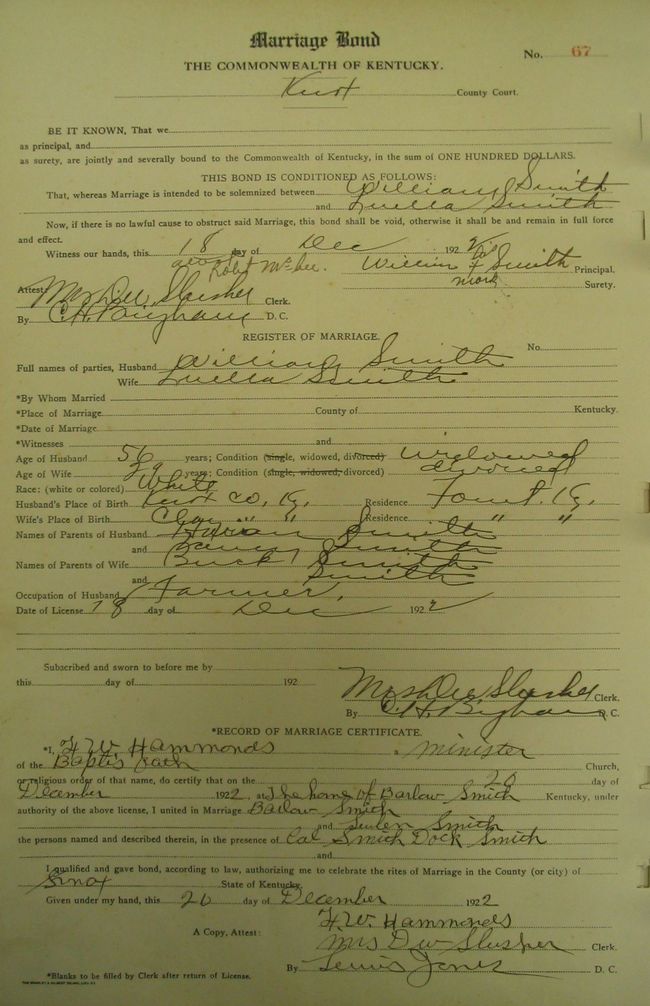 Marriage Bond
No. 67
THE COMMONWEALTH OF KENTUCKY.
Knox County Court.
BE IT KNOWN, That we
as principal, and
as surety, are jointly and severally bound to the Commonwealth of Kentucky, in the sum of ONE HUNDRED DOLLARS.
THIS BOND IS CONDITIONED AS FOLLOWS:
That, whereas Marriage is intended to be solemnized between William Smith
and Luella Smith
Now, if there is no lawful cause to obstruct said Marriage, this bond shall be void, otherwise it shall be and remain in full force
and effect.
Witness our hands, this 18 day of Dec 1922
William his x mark Smith Principal.
Attest: Slusher Clerk. Surety.
By C.H. Bingham D. C.
REGISTER OF MARRIAGE.
No.
Full names of parties, Husband William Smith
Wife Luella Smith
*By Whom Married
*Place of Marriage County of Kentucky.
*Date of Marriage
*Witnesses and
Age of Husband 56 years; Condition (single, widowed, divorced) widowed
Age of Wife 29 years; Condition (single, widowed, divorced) divorced
Race: (white or colored) White
Husband's Place of Birth Knox Co, Ky, Residence Fount. Ky,
Wife's Place of Birth Clay " " Residence " "
Names of Parents of Husband Smith
and Smith
Names of Parents of Wife Buck Smith
and Smith
Occupation of Husband Farmer,
Date of License 18 day of Dec 1922
Subscribed and sworn to before me by
this day of 192
Slusher Clerk.
By C.H. Bingham D. C.
*RECORD OF MARRIAGE CERTIFICATE.
*I, F. W. Hammonds a minister
of the Baptis Church,
or religious order of that name, do certify that on the 20 day of
December 1922, at The home of Barlow Smith Kentucky, under
authority of the above license, I united in Marriage Barlow Smith
and Smith
the persons named and described therein, in the presence of Cal Smith Dock Smith
and
I qualified and gave bond, according to law, authorizing me to celebrate the rites of Marriage in the County (or city) of
Knox State of Kentucky.
Given under my hand, this 20 day of December 1922
F. W. Hammonds
A Copy, Attest: Mrs D W Slusher Clerk.
By Lewis Jones D. C.
*Blanks to be filled by Clerk after return of License.